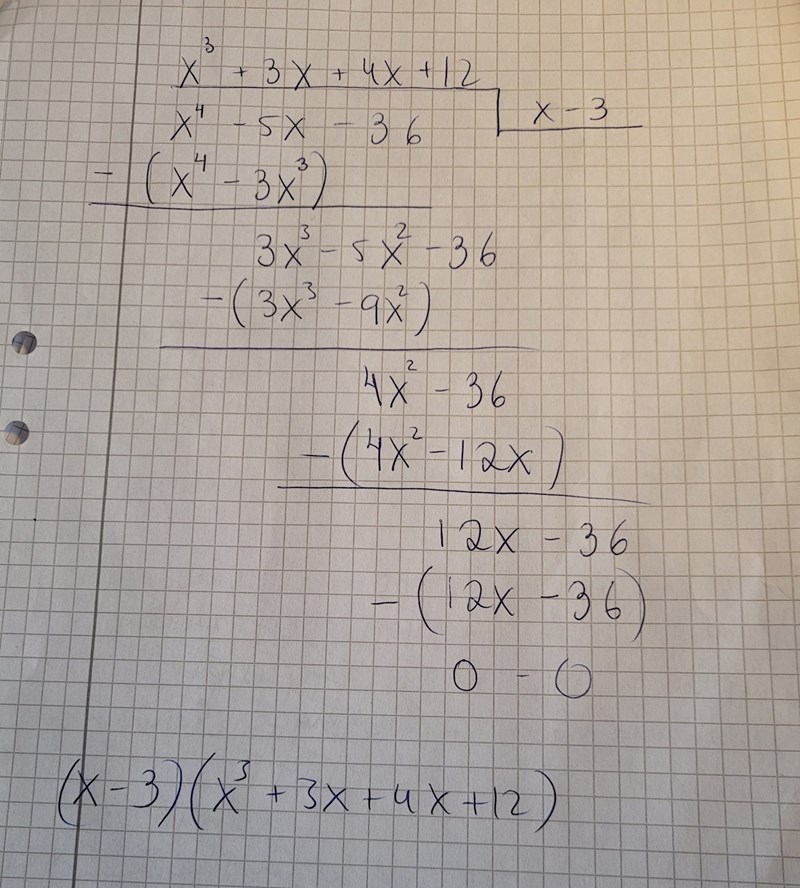 x³ + 3x + 4x + 12
x⁴ - 5x - 36 x - 3
- (x⁴ - 3x³)
3x³ - 5x² - 36
- (3x³ - 9x²)
4x² - 36
- (4x² - 12x)
12x - 36
- (12x - 36)
0 - 0
(x - 3)(x³ + 3x + 4x + 12)